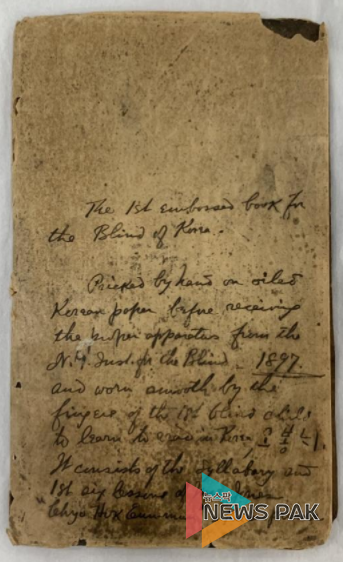 The 1st embossed book for
the Blind of Korea.
Pricked by hand on oiled
Korean paper before receiving
the proper apparatus from the
N.Y. Inst. for the Blind. 1897.
and worn smooth by the
fingers of the 1st blind child
to learn to read in Korea
It consists of the syllabary and
1st six lessons of
뉴스팍
NEWS PAK